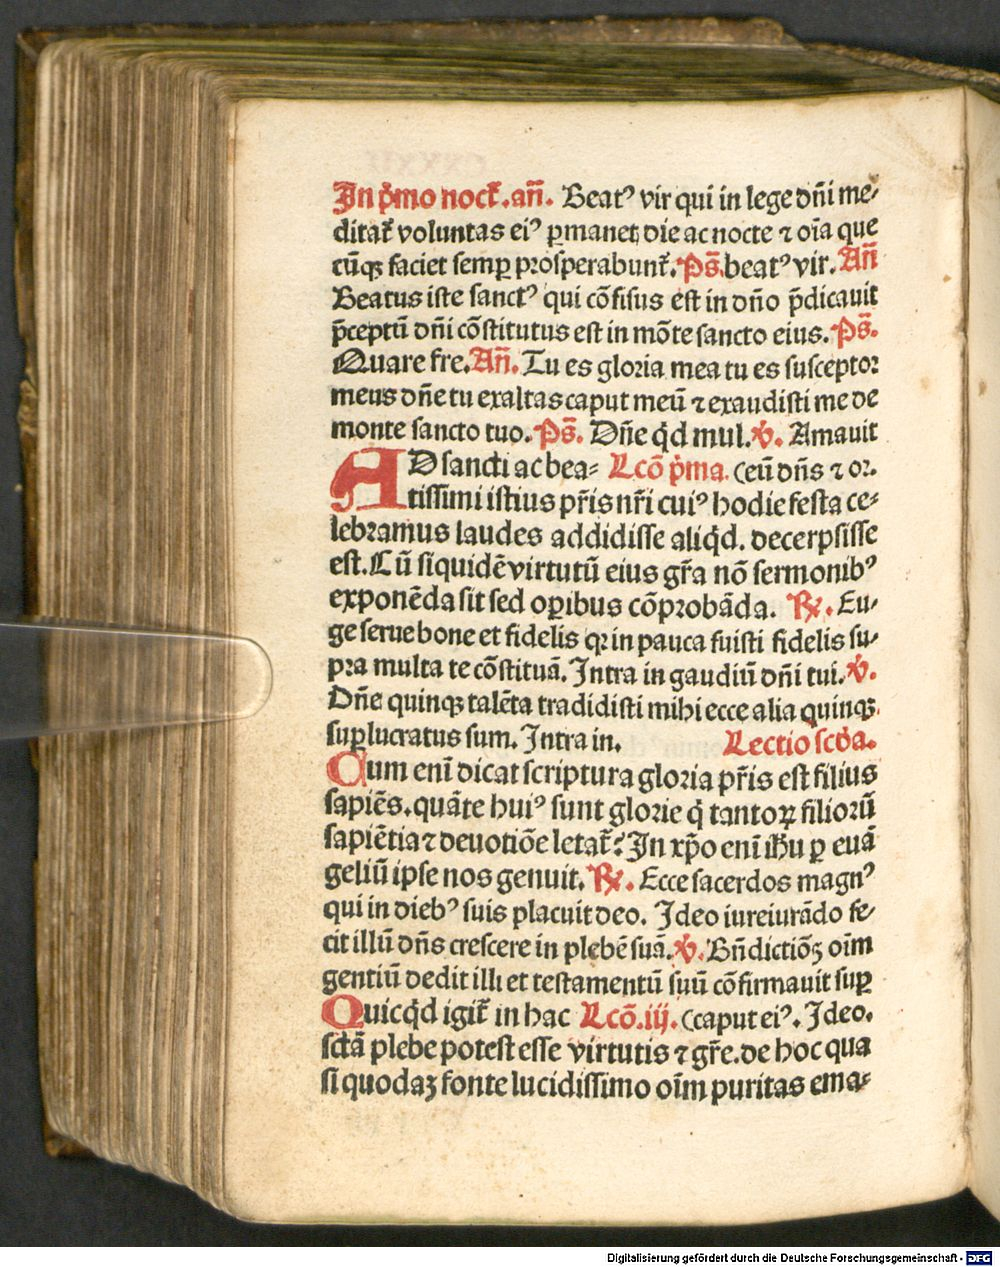 In p̓mo noct̄. an̄. Beatꝰ vir qui in lege dn̄i me⸗
ditat̄ voluntas eiꝰ ꝑmanet die ac nocte ⁊ oīa que
cūqꝫ faciet semꝑ prosperabunt̄. Ps̄. beatꝰ vir. An̄
Beatus iste sanctꝰ qui cōfisus est in dn̄o p̄dicauit
p̄ceptū dn̄i cōstitutus est in mōte sancto eius. Ps̄.
Quare fre. An̄. Tu es gloria mea tu es susceptor
meus dn̄e tu exaltas caput meū ⁊ exaudisti me de
monte sancto tuo. Ps̄. Dn̄e q̇d mul. v̇. Amauit
AD sancti ac bea⸗ Lcō p̓ma. (eū dn̄s ⁊ or.
tissimi istius pr̄is nr̄i cuiꝰ hodie festa ce⸗
lebramus laudes addidisse aliq̇d. decerpsisse
est. Cū siquidē virtutū eius gr̄a nō sermonibꝰ
exponēda sit sed oꝑibus cōprobāda. ℞. Eu⸗
ge serue bone et fidelis qꝛ in pauca fuisti fidelis su⸗
pra multa te cōstituā. Intra in gaudiū dn̄i tui. v̇.
Dn̄e quinqꝫ talēta tradidisti mihi ecce alia quinqꝫ
suꝑlucratus sum. Intra in. Lectio scd̄a.
Cum enī dicat scriptura gloria pr̄is est filius
sapiēs. quāte huiꝰ sunt glorie q̇ tantoꝝ filiorū
sapiētia ⁊ deuotiōe letat̄? In xp̄o enī ih̄u ꝑ euā
geliū ipse nos genuit. ℞. Ecce sacerdos magnꝰ
qui in diebꝰ suis placuit deo. Ideo iureiurādo fe⸗
cit illū dn̄s crescere in plebē suā. v̇. Bn̄dictiōꝫ oīm
gentiū dedit illi et testamentū suū cōfirmauit suꝑ
Quicq̇d igit̄ in hac Lcō. iij. (caput eiꝰ. Ideo.
sctā plebe potest esse virtutis ⁊ gr̄e. de hoc qua
si quodaꝫ fonte lucidissimo oīm puritas ema⸗
Digitalisierung gefördert durch die Deutsche Forschungsgemeinschaft - DFG